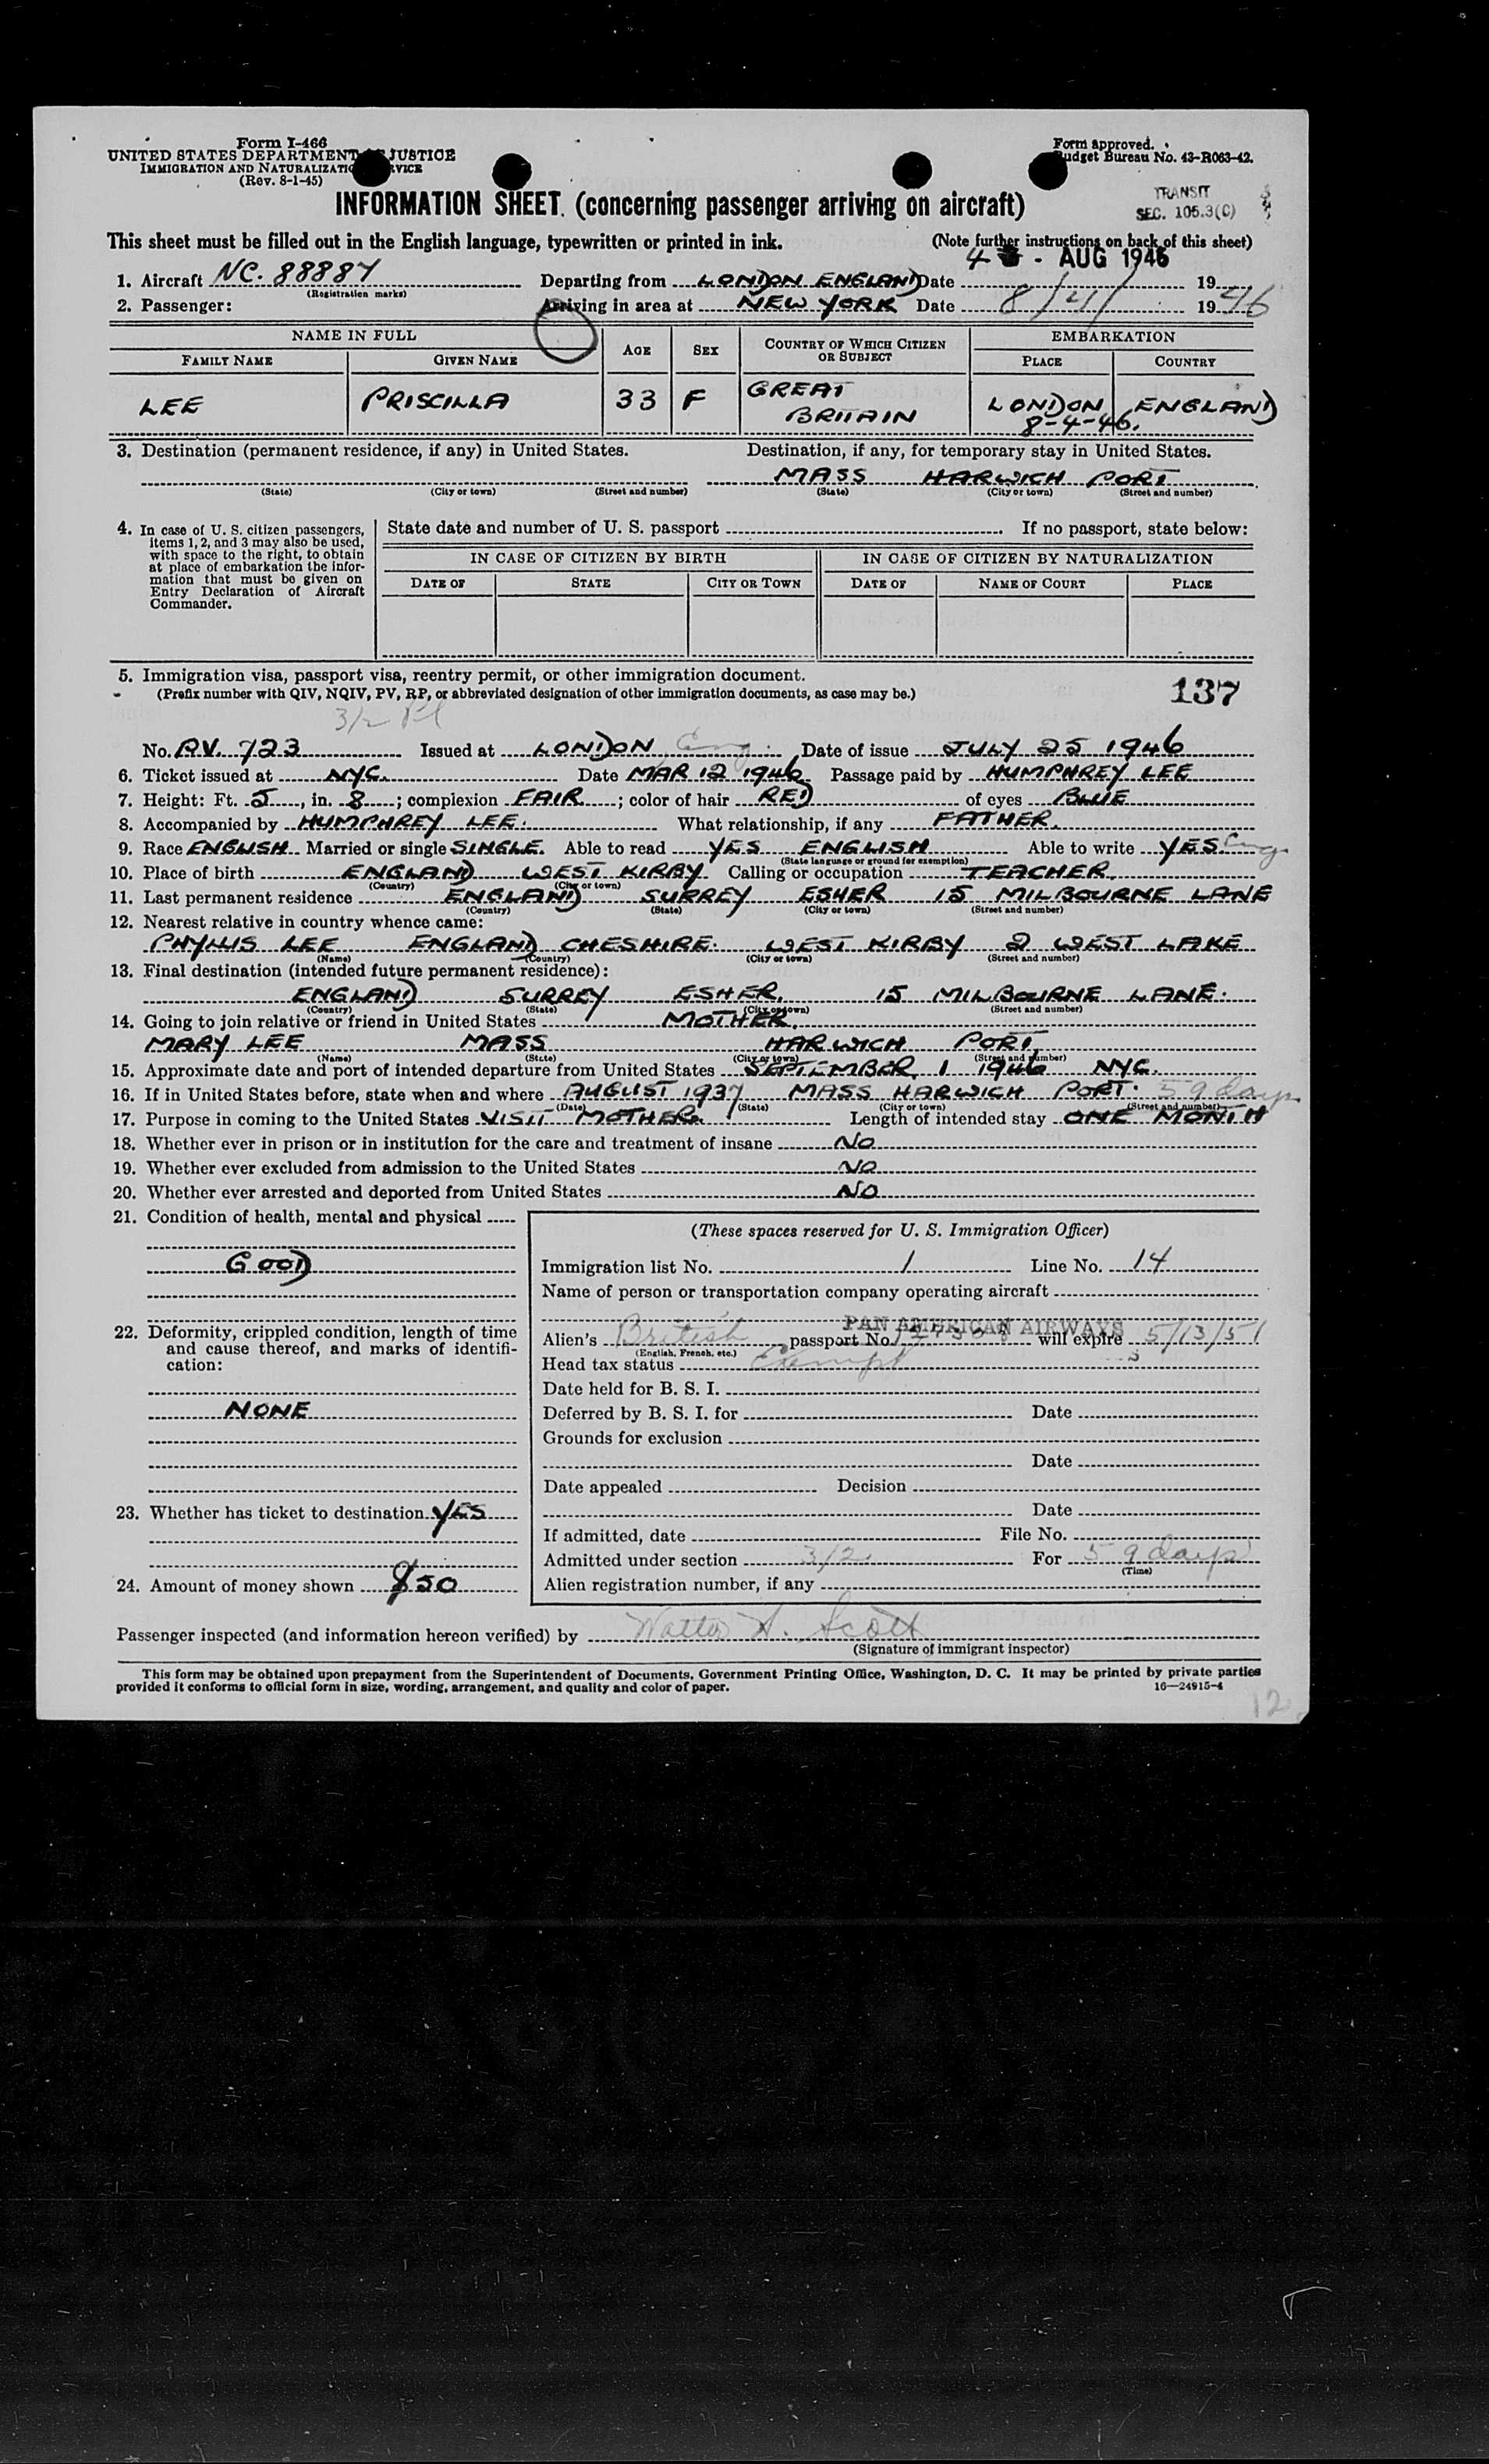 Form I-466
UNITED STATES DEPARTMENT JUSTICE
IMMIGRATION AND
(Rev. 8-1-45)
Form approved.
Budget Bureau No. 43-R063-42.
TRANSIT
SEC. 105.3(C)
INFORMATION SHEET (concerning passenger arriving on aircraft)
This sheet must be filled out in the English language, typewritten or printed in ink. (Note further instructions on back of this sheet)
4 - AUG 1946
1. Aircraft NC. 88887 Departing from LONDON ENGLAND Date 19
(Registration marks)
2. Passenger: Arriving in area at NEW YORK Date 8/4/ 1946
NAME IN FULL AGE SEX COUNTRY OF WHICH CITIZEN OR SUBJECT EMBARKATION
FAMILY NAME GIVEN NAME PLACE COUNTRY
LEE PRISCILLA 33 F GREAT BRITAIN LONDON ENGLAND
8-4-46.
3. Destination (permanent residence, if any) in United States. Destination, if any, for temporary stay in United States.
MASS HARWICH PORT
(State) (City or town) (Street and number) (State) (City or town) (Street and number)
4. In case of U. S. citizen passengers, items 1, 2, and 3 may also be used, with space to the right, to obtain at place of embarkation the information that must be given on Entry Declaration of Aircraft Commander.
State date and number of U. S. passport If no passport, state below:
IN CASE OF CITIZEN BY BIRTH IN CASE OF CITIZEN BY NATURALIZATION
DATE OF STATE CITY OR TOWN DATE OF NAME OF COURT PLACE
5. Immigration visa, passport visa, reentry permit, or other immigration document.
(Prefix number with QIV, NQIV, PV, RP, or abbreviated designation of other immigration documents, as case may be.) 137
3/2
No. P.V. 723 Issued at LONDON Eng. Date of issue JULY 25 1946
6. Ticket issued at NYC. Date MAR 12 1946 Passage paid by HUMPHREY LEE
7. Height: Ft. 5, in. 8; complexion FAIR; color of hair RED of eyes BLUE
8. Accompanied by HUMPHREY LEE. What relationship, if any FATHER.
9. Race ENGLISH Married or single SINGLE. Able to read YES ENGLISH Able to write YES. Eng
(State language or ground for exemption)
10. Place of birth ENGLAND WEST KIRBY Calling or occupation TEACHER.
(Country) (City or town)
11. Last permanent residence ENGLAND SURREY ESHER 15 MILBOURNE LANE
(Country) (State) (City or town) (Street and number)
12. Nearest relative in country whence came:
PHYLLIS LEE ENGLAND CHESHIRE. WEST KIRBY 2 WEST LAKE
(Name) (Country) (City or town) (Street and number)
13. Final destination (intended future permanent residence):
ENGLAND SURREY ESHER. 15 MILBOURNE LANE.
(Country) (State) (City or town) (Street and number)
14. Going to join relative or friend in United States MOTHER.
MARY LEE MASS HARWICH PORT
(Name) (State) (City or town) (Street and number)
15. Approximate date and port of intended departure from United States SEPTEMBER 1 1946 NYC.
16. If in United States before, state when and where AUGUST 1937 MASS HARWICH PORT. 59 days
(Date) (State) (City or town) (Street and number)
17. Purpose in coming to the United States VISIT MOTHER. Length of intended stay ONE MONTH
18. Whether ever in prison or in institution for the care and treatment of insane NO
19. Whether ever excluded from admission to the United States NO
20. Whether ever arrested and deported from United States NO
21. Condition of health, mental and physical
GOOD
22. Deformity, crippled condition, length of time and cause thereof, and marks of identification:
NONE
23. Whether has ticket to destination YES
24. Amount of money shown $50
(These spaces reserved for U. S. Immigration Officer)
Immigration list No. 1 Line No. 14
Name of person or transportation company operating aircraft
PAN AMERICAN AIRWAYS
Alien's British passport No. will expire 5/13/51
(English, French, etc.)
Head tax status Exempt
Date held for B. S. I.
Deferred by B. S. I. for Date
Grounds for exclusion
Date
Date appealed Decision
Date
If admitted, date File No.
Admitted under section 3/2 For 59 days
(Time)
Alien registration number, if any
Passenger inspected (and information hereon verified) by Walter A. Scott
(Signature of immigrant inspector)
This form may be obtained upon prepayment from the Superintendent of Documents, Government Printing Office, Washington, D. C. It may be printed by private parties
provided it conforms to official form in size, wording, arrangement, and quality and color of paper. 16—24915-4
12